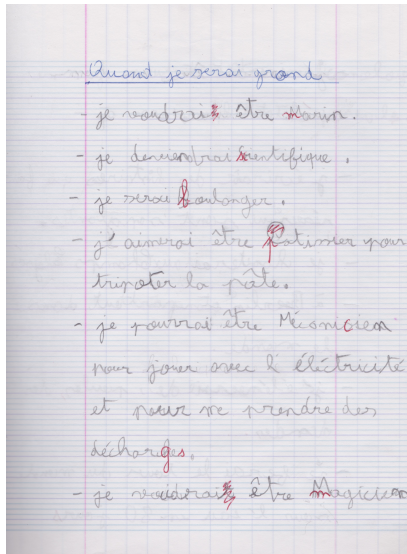 Quand je serai grand
- je voudrais être marin.
- je deviendrai scientifique.
- je serai boulanger.
- j'aimerai être patissier pour
tripoter la pâte.
- je pourrai être Mécanicien
pour jouer avec l'éléctricité
et pour me prendre des
décharges.
- je voudrais être magicien